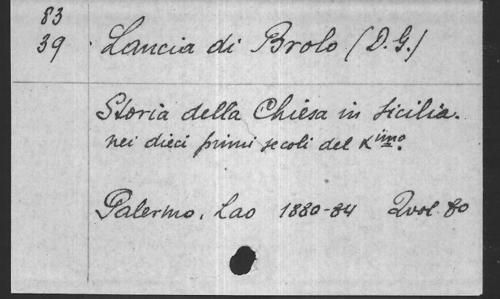 83
39 Lancia di Brolo (D. G.)
Storia della Chiesa in Sicilia.
nei dieci primi secoli del Ximo.
Palermo, Lao 1880-84 2 vol. 80